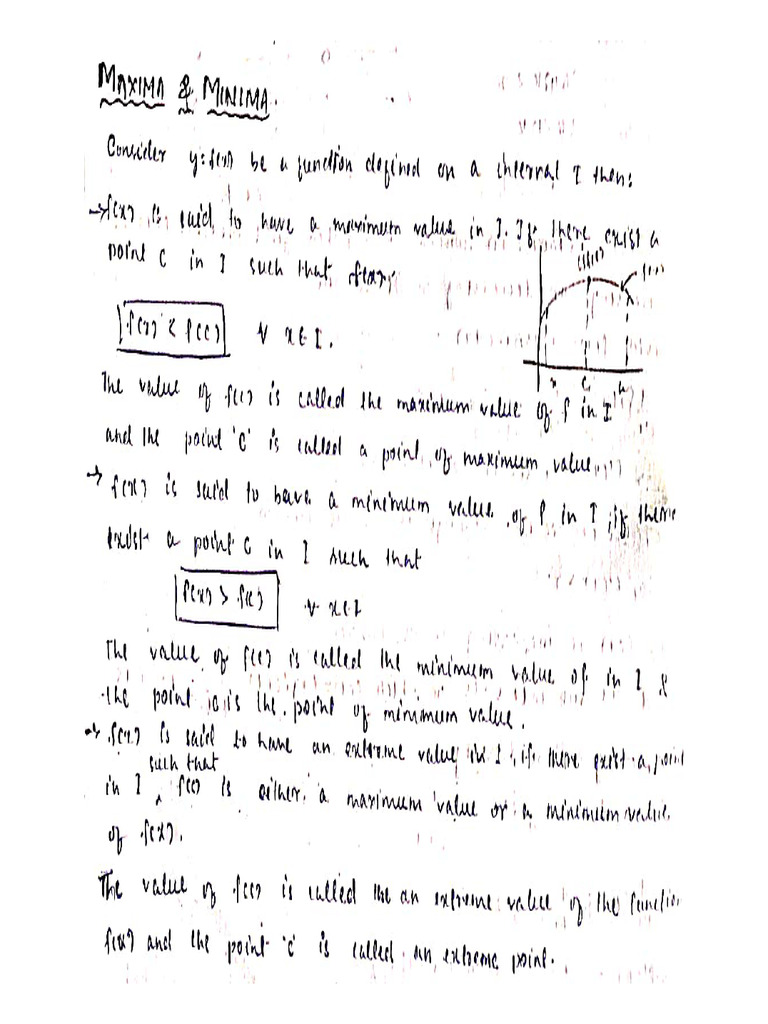 MAXIMA & MINIMA.
Consider y=f(x) be a function defined on a interval I then:
→ f(x) is said to have a maximum value in I. If there exist a
point C in I such that f(x),
f(x) < f(c) ∀ x∈I.
x C h
The value of f(c) is called the maximum value of f in I
and the point 'C' is called a point of maximum value
→ f(x) is said to have a minimum value of f in I, if there
exist a point C in I such that
f(x) > f(c) ∀ x∈I
The value of f(c) is called the minimum value of in I &
the point c is the point of minimum value.
→ f(x) is said to have an extreme value in I, if there exist a point
such that
in I, f(c) is either a maximum value or a minimum value
of f(x).
The value of f(c) is called the an extreme value of the function
f(x) and the point 'c' is called an extreme point.